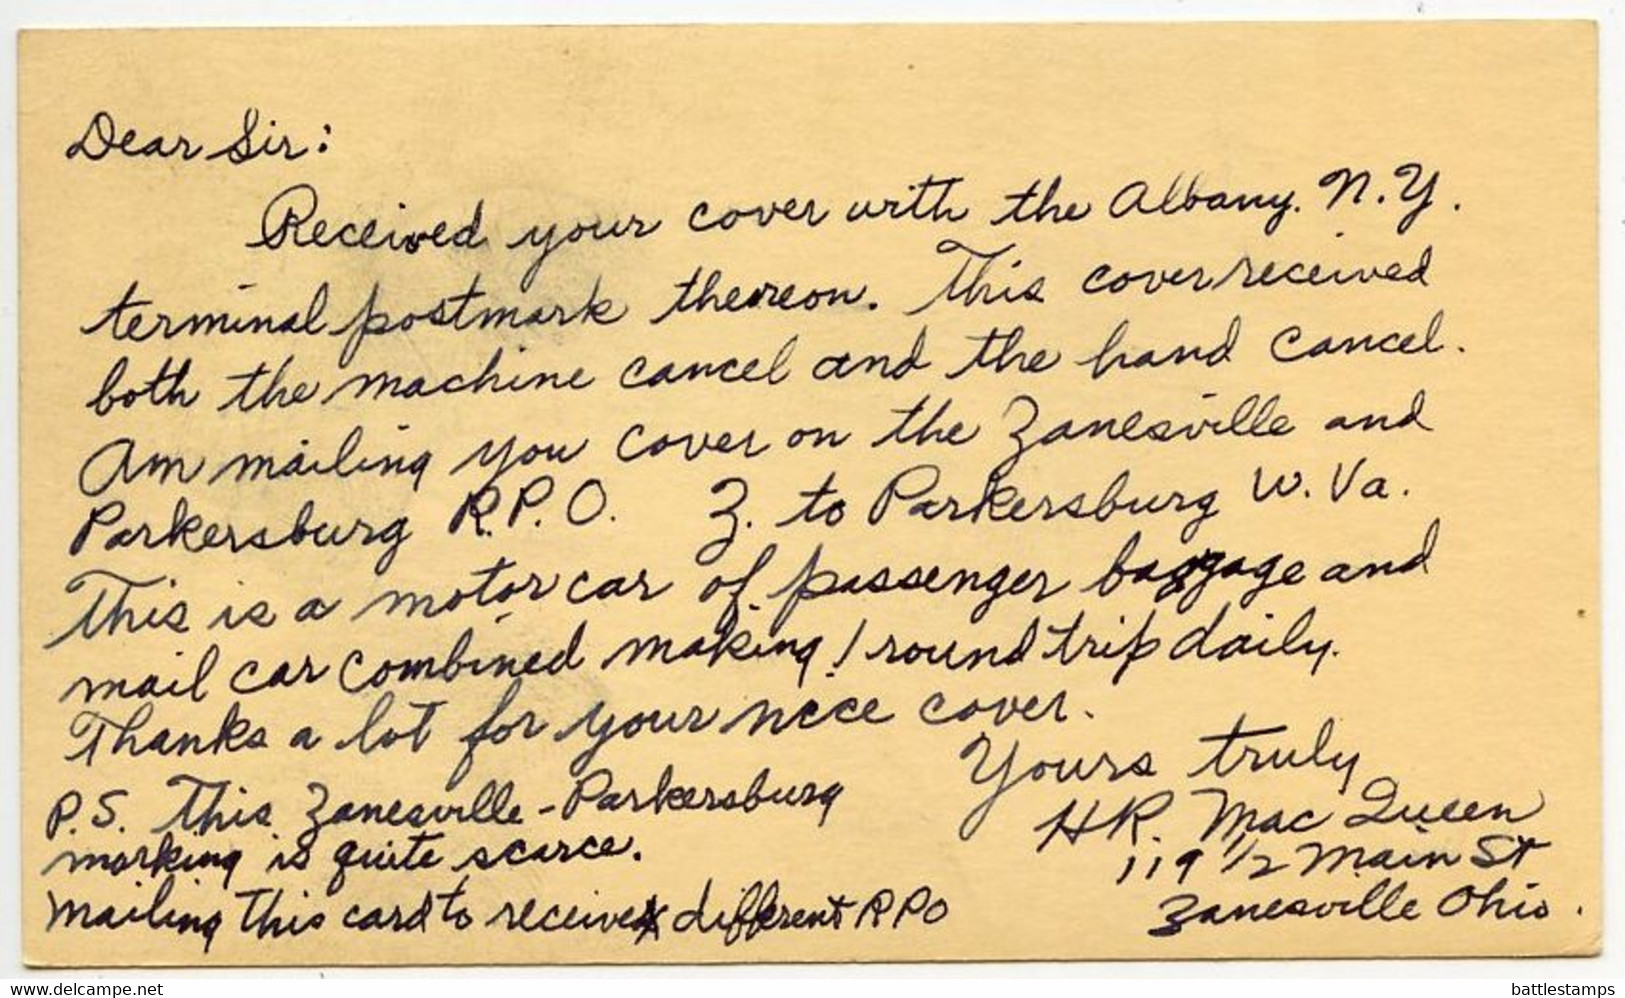 Dear Sir:
Received your cover with the Albany. N.Y.
terminal postmark thereon. This cover received
both the machine cancel and the hand cancel.
Am mailing you cover on the Zanesville and
Parkersburg R.P.O. Z. to Parkersburg W. Va.
This is a motor car of passenger baggage and
mail car combined making 1 round trip daily.
Thanks a lot for your nice cover.
Yours truly
HR. Mac Queen
119 1/2 Main St
Zanesville Ohio.
P.S. This Zanesville-Parkersburg
marking is quite scarce.
Mailing this card to receive different RPO
www.delcampe.net
battlestamps